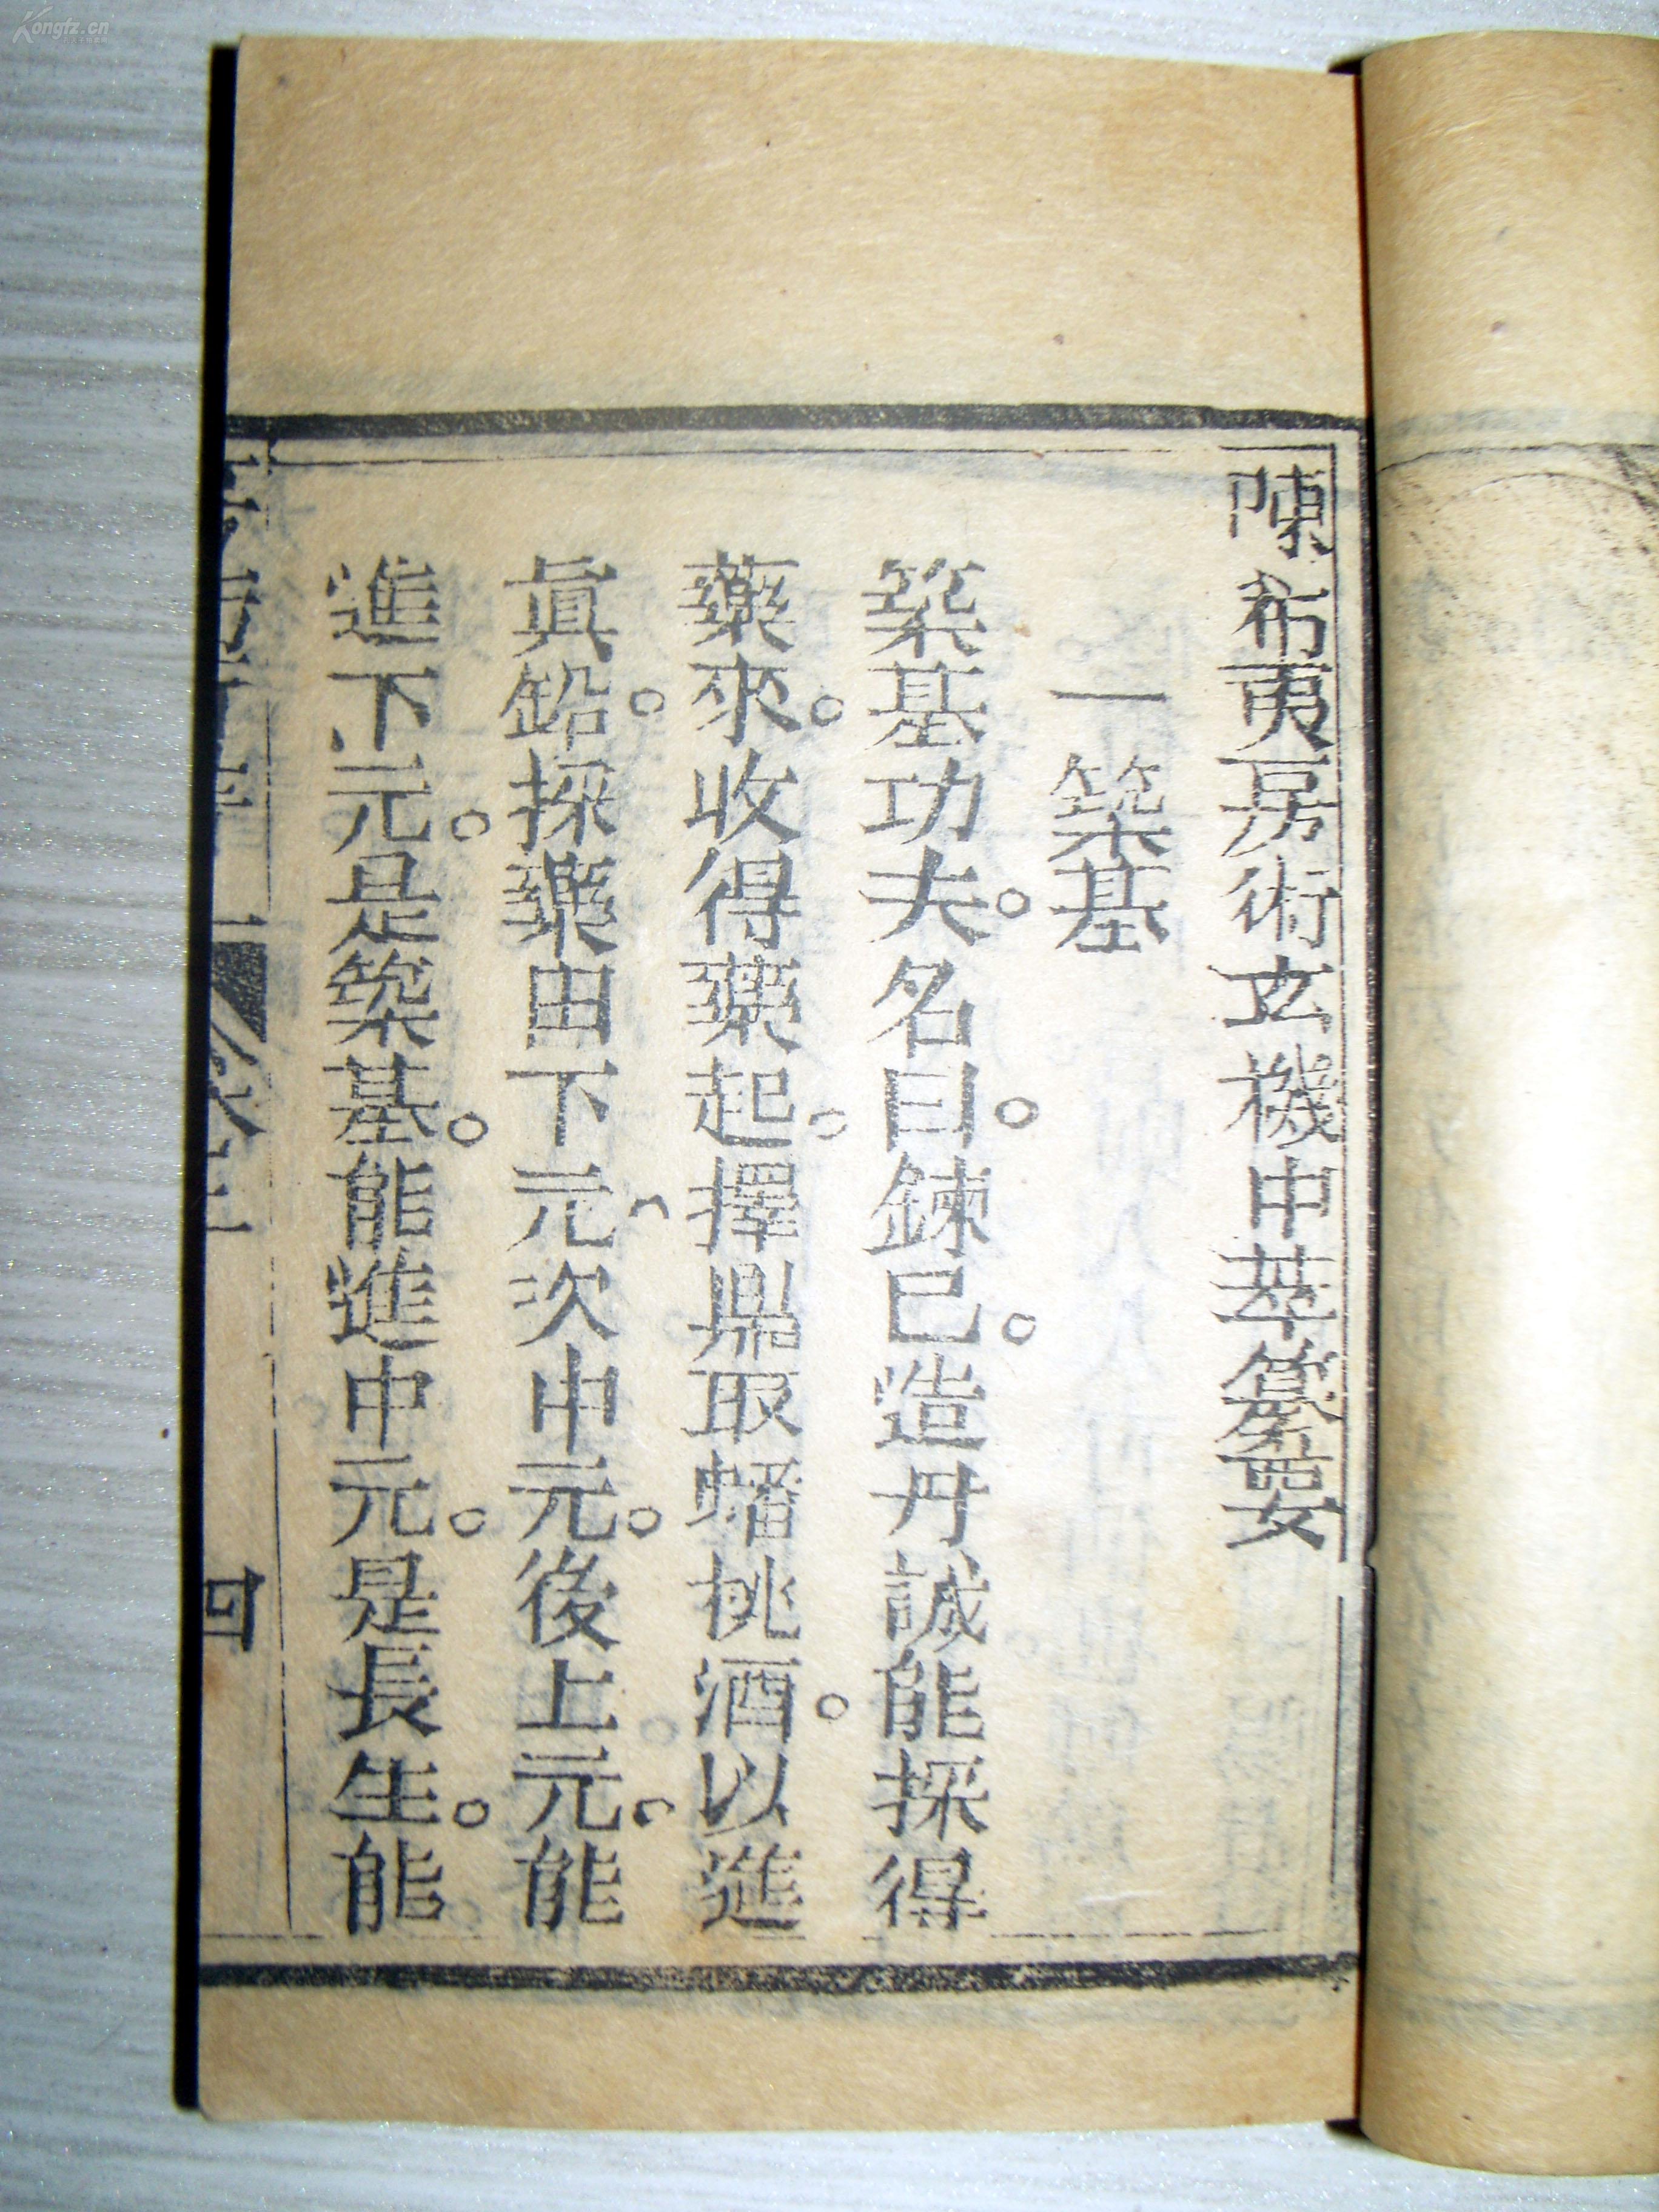 陳希夷房術玄機中萃纂要
一築基
築基功夫。名曰鍊已。造丹誠能採得
藥來。收得藥起。擇鼎取蟠桃酒。以進
眞鉛。採藥由下元。次中元。後上元。能
進下元。是築基。能進中元。是長生。能
Kongfz.cn